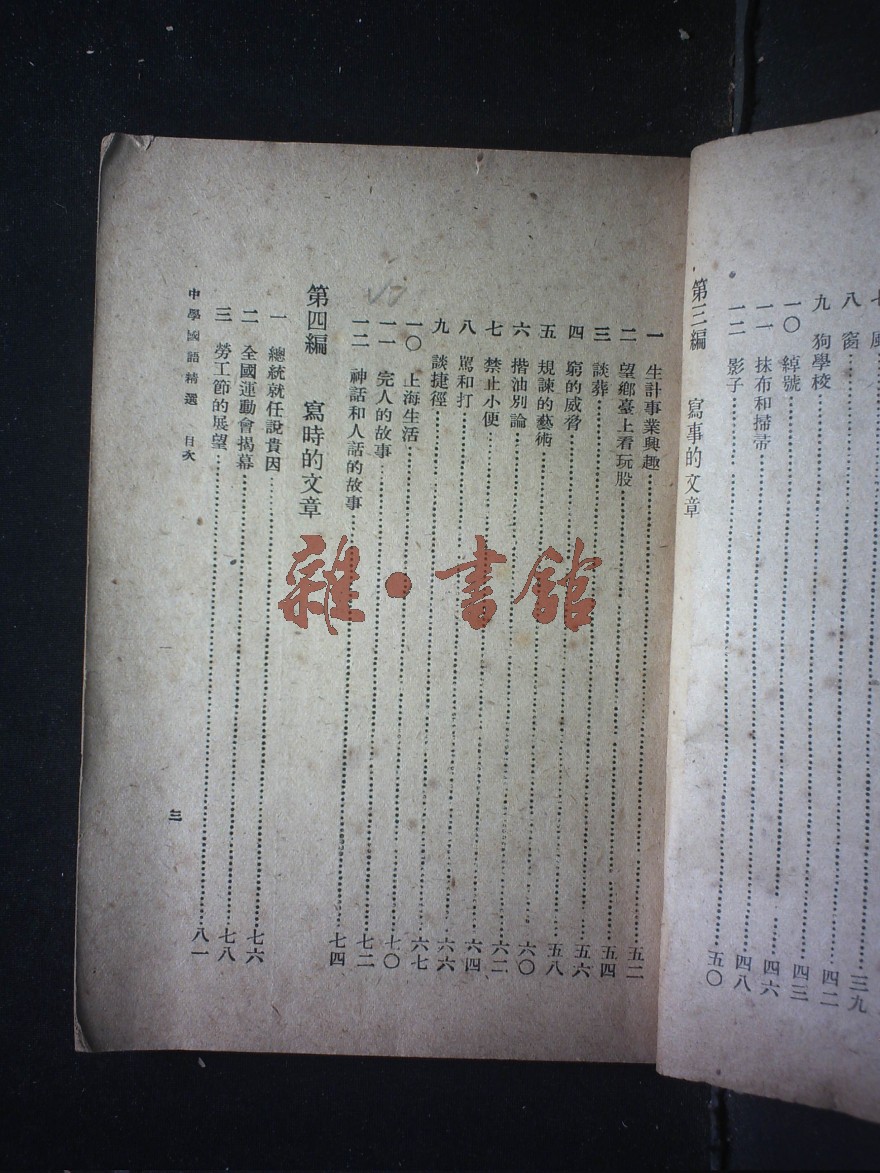 七 風……三九
八 窗……四二
九 狗學校……四三
一〇 綽號……四六
一一 抹布和掃帚……四八
一二 影子……五〇
第三編 寫事的文章
一 生計事業興趣……五二
二 望鄉臺上看玩股……五四
三 談葬……五六
四 窮的威脅……五八
五 規諫的藝術……六〇
六 揩油別論……六二
七 禁止小便……六四
八 罵和打……六六
九 談捷徑……六七
一〇 上海生活……七〇
一一 完人的故事……七二
一二 神話和人話的故事……七四
第四編 寫時的文章
一 總統就任說貴因……七六
二 全國運動會揭幕……七八
三 勞工節的展望……八一
中學國語精選 目次
三
雜·書館